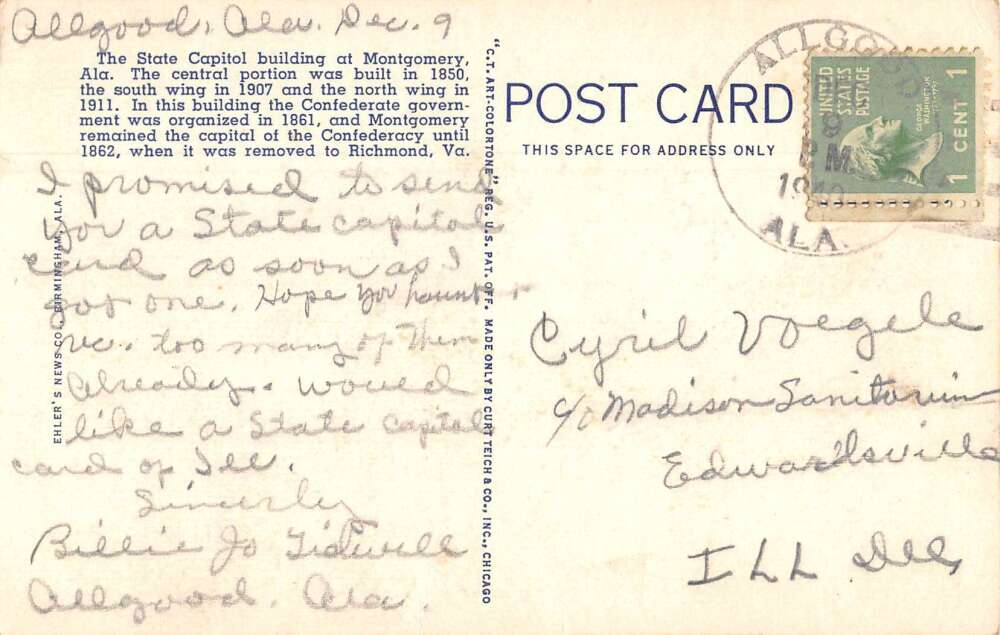 Allgood, Ala. Dec. 9
The State Capitol building at Montgomery,
Ala. The central portion was built in 1850,
the south wing in 1907 and the north wing in
1911. In this building the Confederate govern-
ment was organized in 1861, and Montgomery
remained the capital of the Confederacy until
1862, when it was removed to Richmond, Va.
I promised to send
you a State capitol
card as soon as I
got one. Hope you haunt
rec. too many of them
already. would
like a State capitol
card of Ill.
Sincerly
Billie Jo Tidwell
Allgood, Ala.
EHLER'S NEWS CO., BIRMINGHAM, ALA.
"C.T. ART-COLORTONE" REG. U.S. PAT. OFF. MADE ONLY BY CURT TEICH & CO., INC., CHICAGO
POST CARD
THIS SPACE FOR ADDRESS ONLY
ALLGOOD
P.M.
1940
ALA.
UNITED
STATES
POSTAGE
GEORGE
WASHINGTON
1 CENT 1
Cyril Voegele
c/o Madison Sanitorium
Edwardsville
ILL Ill,